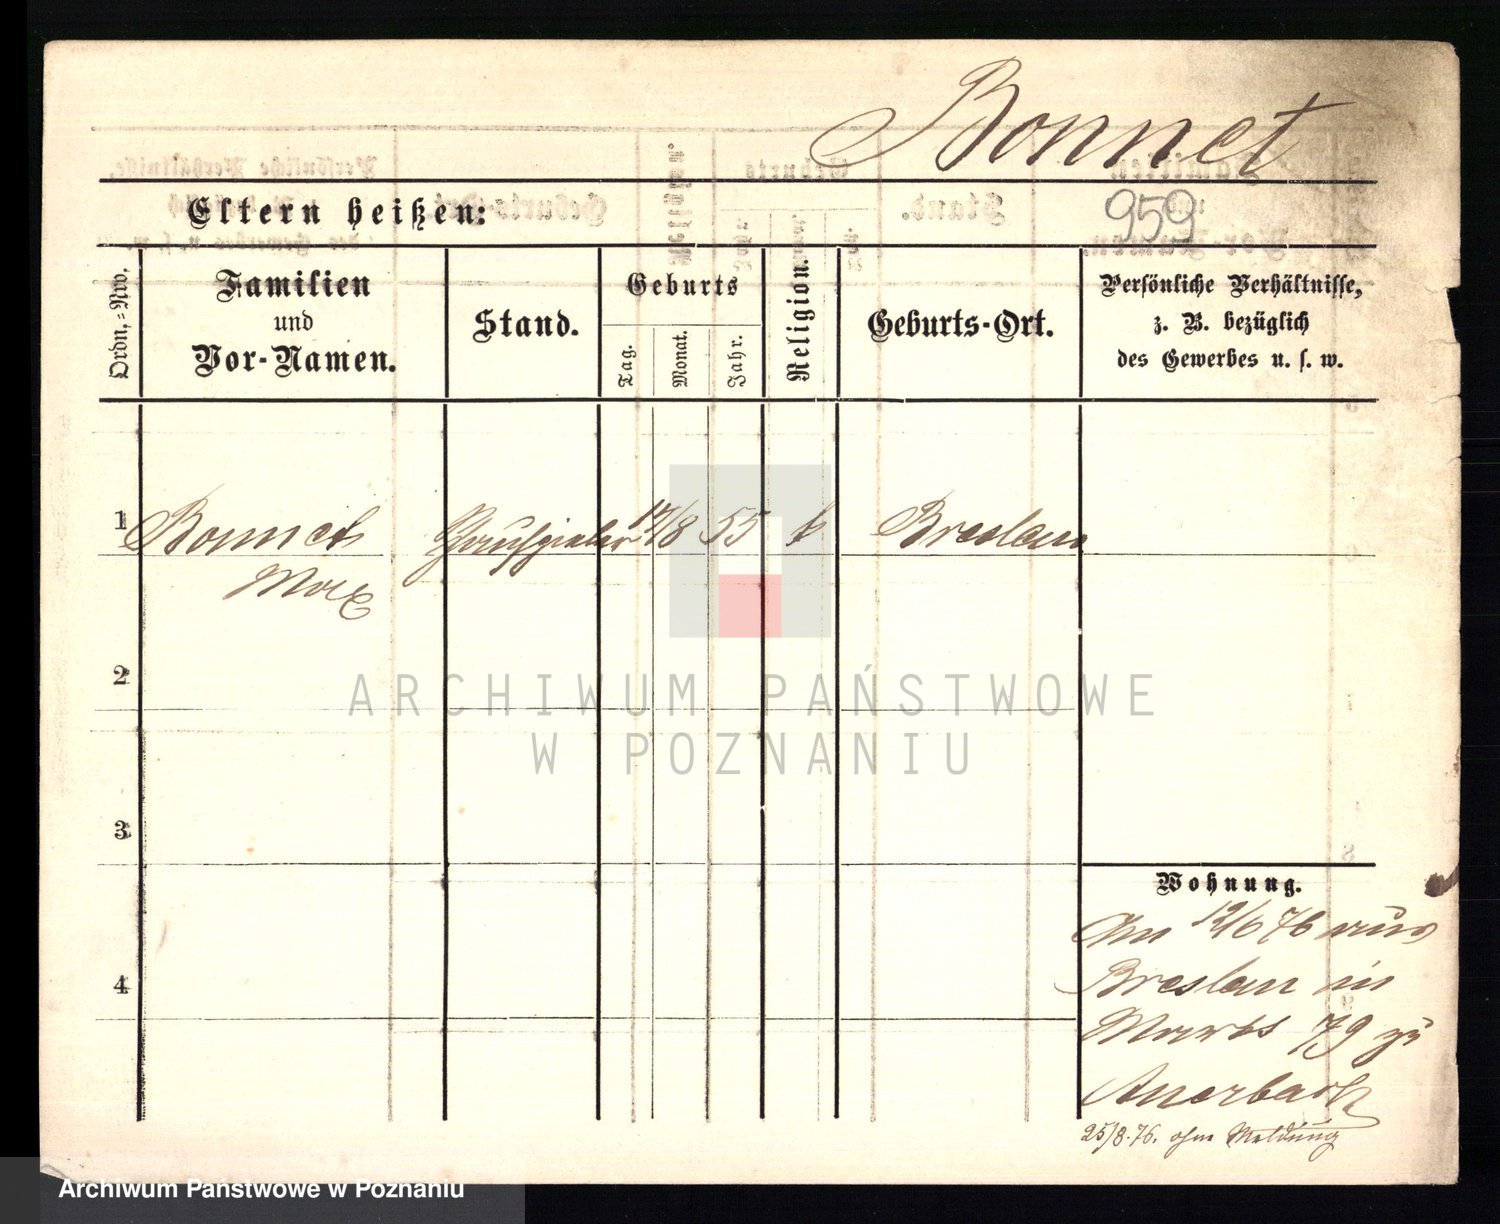 Bonnet
Eltern heißen:
959
Ordn.=Nro.
Familien
und
Vor-Namen.
Stand.
Geburts
Tag.
Monat.
Jahr.
Religion.
Geburts-Ort.
Persönliche Verhältnisse,
z. B. bezüglich
des Gewerbes u. s. w.
1
Bonnet
Max
Schauspieler
17/8
55
k
Breslau
2
3
4
Wohnung.
Am 12/6 76 aus
Breslau in
Markt 79 zu
Auerbach
25/8.76. ohne Meldung
ARCHIWUM PAŃSTWOWE
W POZNANIU
Archiwum Państwowe w Poznaniu